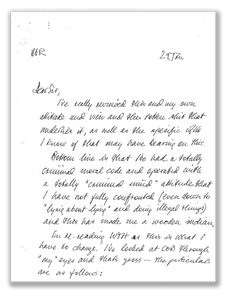 MR 29 Jan
Dear Sir,
I've really reviewed this and my own
attitude and view and the that
underlies it, as well as the specific
I know of that may have bearing on this.
Bottom line is that He had a totally
criminal moral code and operated with
a totally "criminal mind" attitude that
I have not fully confronted (even down to
"lying about lying" and doing illegal things)
and this has made me a wooden indian.
In re-reading as this is what I
have to change. I've looked at through
"my" eyes and that's gross — the particulars
are as follows: